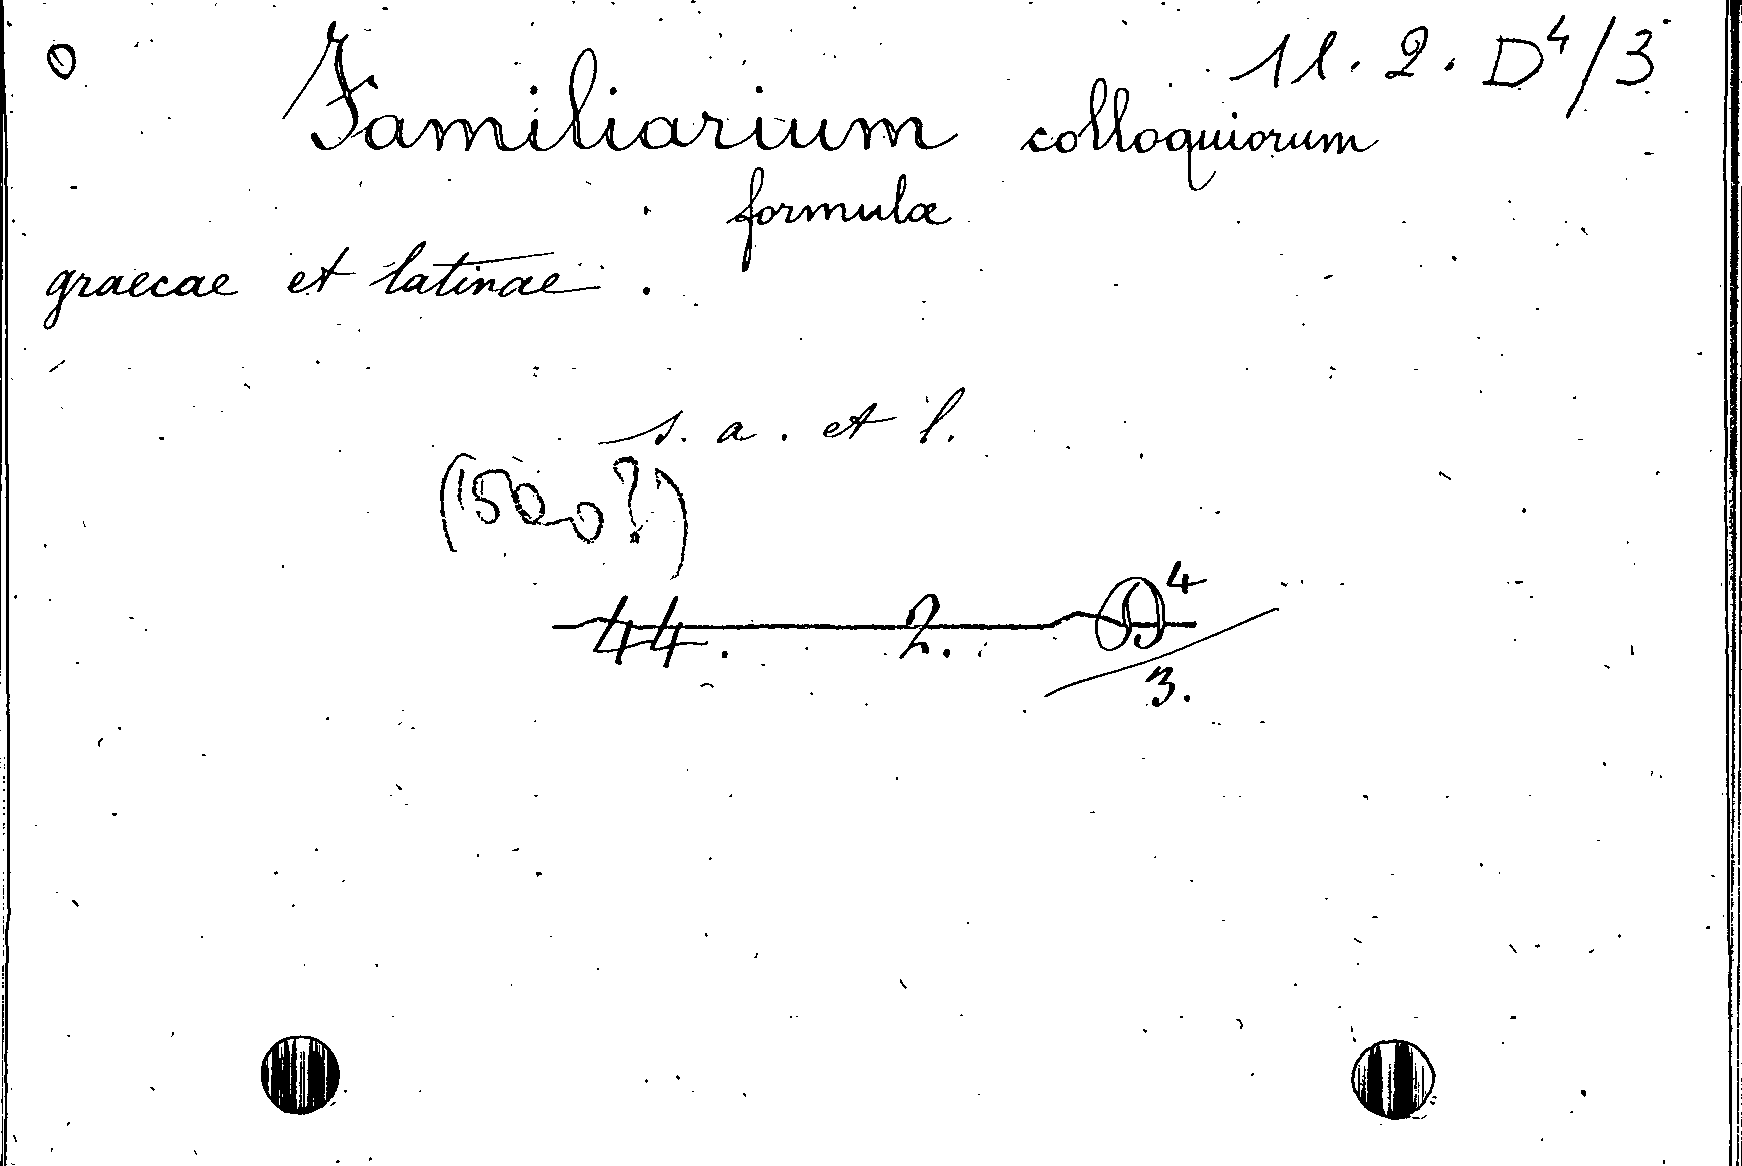 11. 2. D⁴/3
Familiarium colloquiorum
formulæ
graecae et latinae.
s. a. et l.
(1500?)
44. 2. D⁴/3.